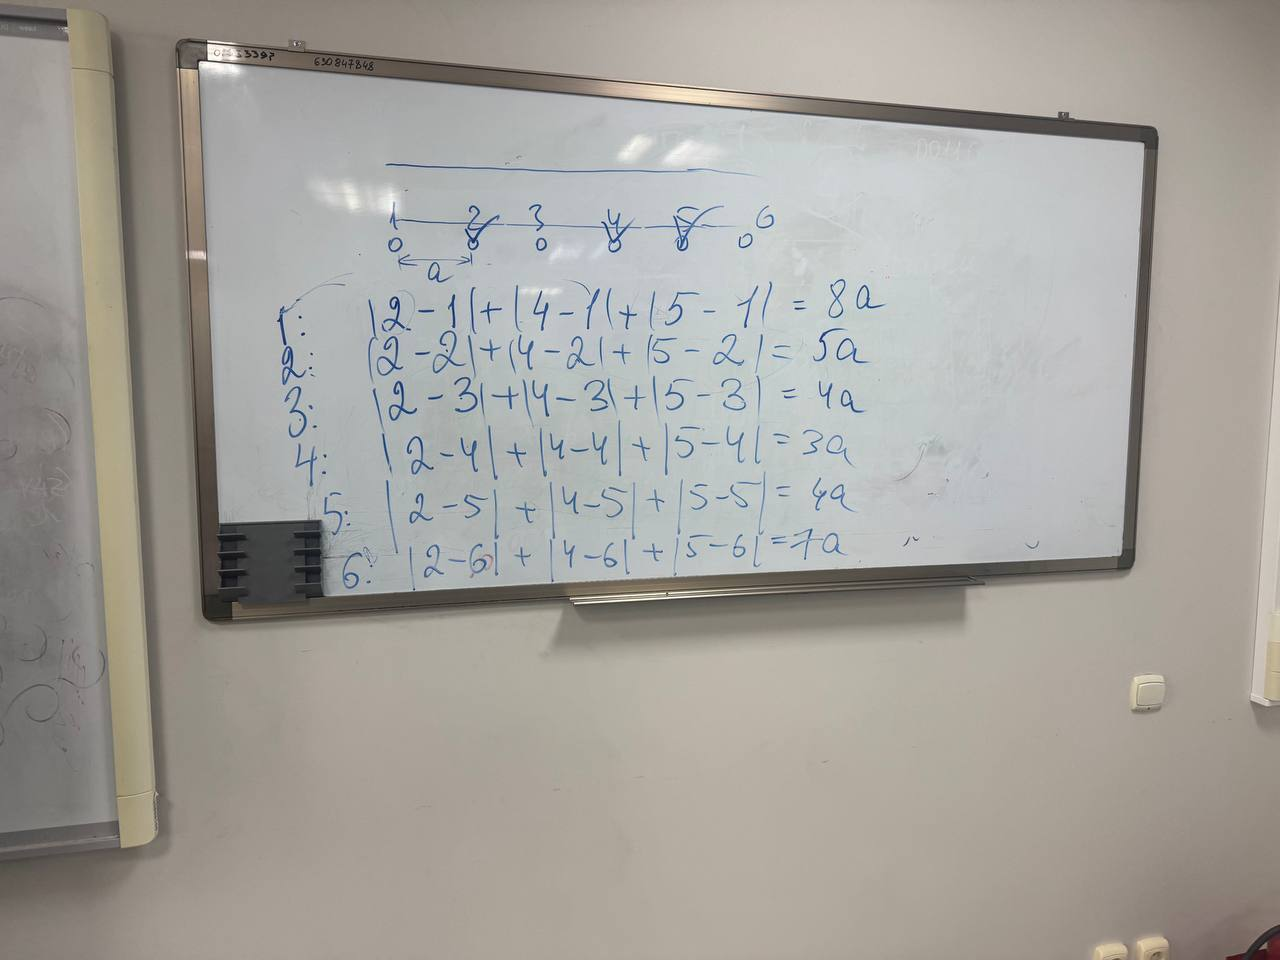 630847848
1 2 3 4 5 6
0 0 0 0 0 0
a
1: |2-1|+|4-1|+|5-1| = 8a
2: |2-2|+|4-2|+|5-2| = 5a
3: |2-3|+|4-3|+|5-3| = 4a
4: |2-4|+|4-4|+|5-4| = 3a
5: |2-5|+|4-5|+|5-5| = 4a
6: |2-6|+|4-6|+|5-6| = 7a